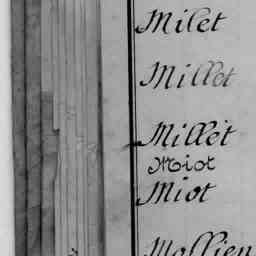 Milet
Millet
Millet
Miot
Miot
Mollien